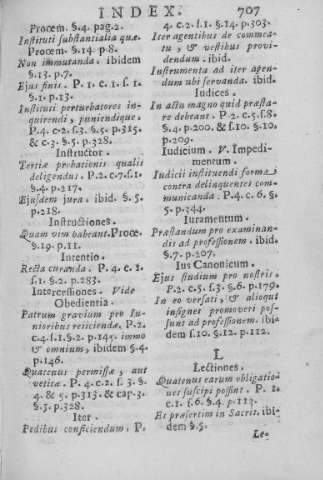 INDEX. 707
Proœm. §.4. pag.2.
Instituti substantialia quæ.
Proœm. §.14. p.8.
Non immutanda. ibidem
§.13. p.7.
Ejus finis. P. 1. c. 1. s. 1.
§.1. p.13.
Instituti perturbatores in-
quirendi, puniendique.
P.4. c.2. s.3. §.5. p.315.
& c.3. §.5. p.328.
Instructor.
Tertiæ probationis qualis
deligendus. P.2.c.7.s.1.
§.4. p.217.
Ejusdem jura. ibid. §.5.
p.218.
Instructiones.
Quam vim habeant. Proœ.
§.19. p.11.
Intentio.
Recta curanda. P. 4. c. 1.
s.1. §.2. p.283.
Intercessiones. Vide
Obedientia.
Patrum gravium pro Ju-
nioribus reiiciendæ. P.2.
c.4.s.1.§.2. p.145. immo
& omnium, ibidem §.4.
p.146.
Quatenus permissæ, aut
vetitæ. P. 4. c.2. s. 3. §.
4. & 5. p.313. & cap.3.
§.5. p.328.
Iter.
Pedibus conficiendum. P.
4. c.2. s.1. §.14. p.303.
Iter agentibus de commea-
tu, & vestibus provi-
dendum. ibid.
Instrumenta ad iter agen-
dum ubi servanda. ibid.
Iudices.
In actu magno quid præsta-
re debeant. P.2. c.5.s.8.
§.4. p.200. & s.10. §.10.
p.209.
Iudicium. V. Impedi-
mentum.
Iudicii instituendi forma
contra delinquentes com-
municanda. P.4. c.6. §.
5. p.344.
Iuramentum.
Præstandum pro examinan-
dis ad professionem. ibid.
§.7. p.207.
Ius Canonicum.
Ejus studium pro nostris.
P.2. c.5. s.3. §.6. p.179.
In eo versati, & alioqui
insignes promoveri pos-
sunt ad professionem. ibi-
dem s.10. §.12. p.112.
L
Lectiones.
Quatenus earum obligatio-
nes suscipi possint. P. 1.
c.1. s.6. §.4. p.113.
Et præsertim in Sacris. ibi-
dem §.5.
Le-